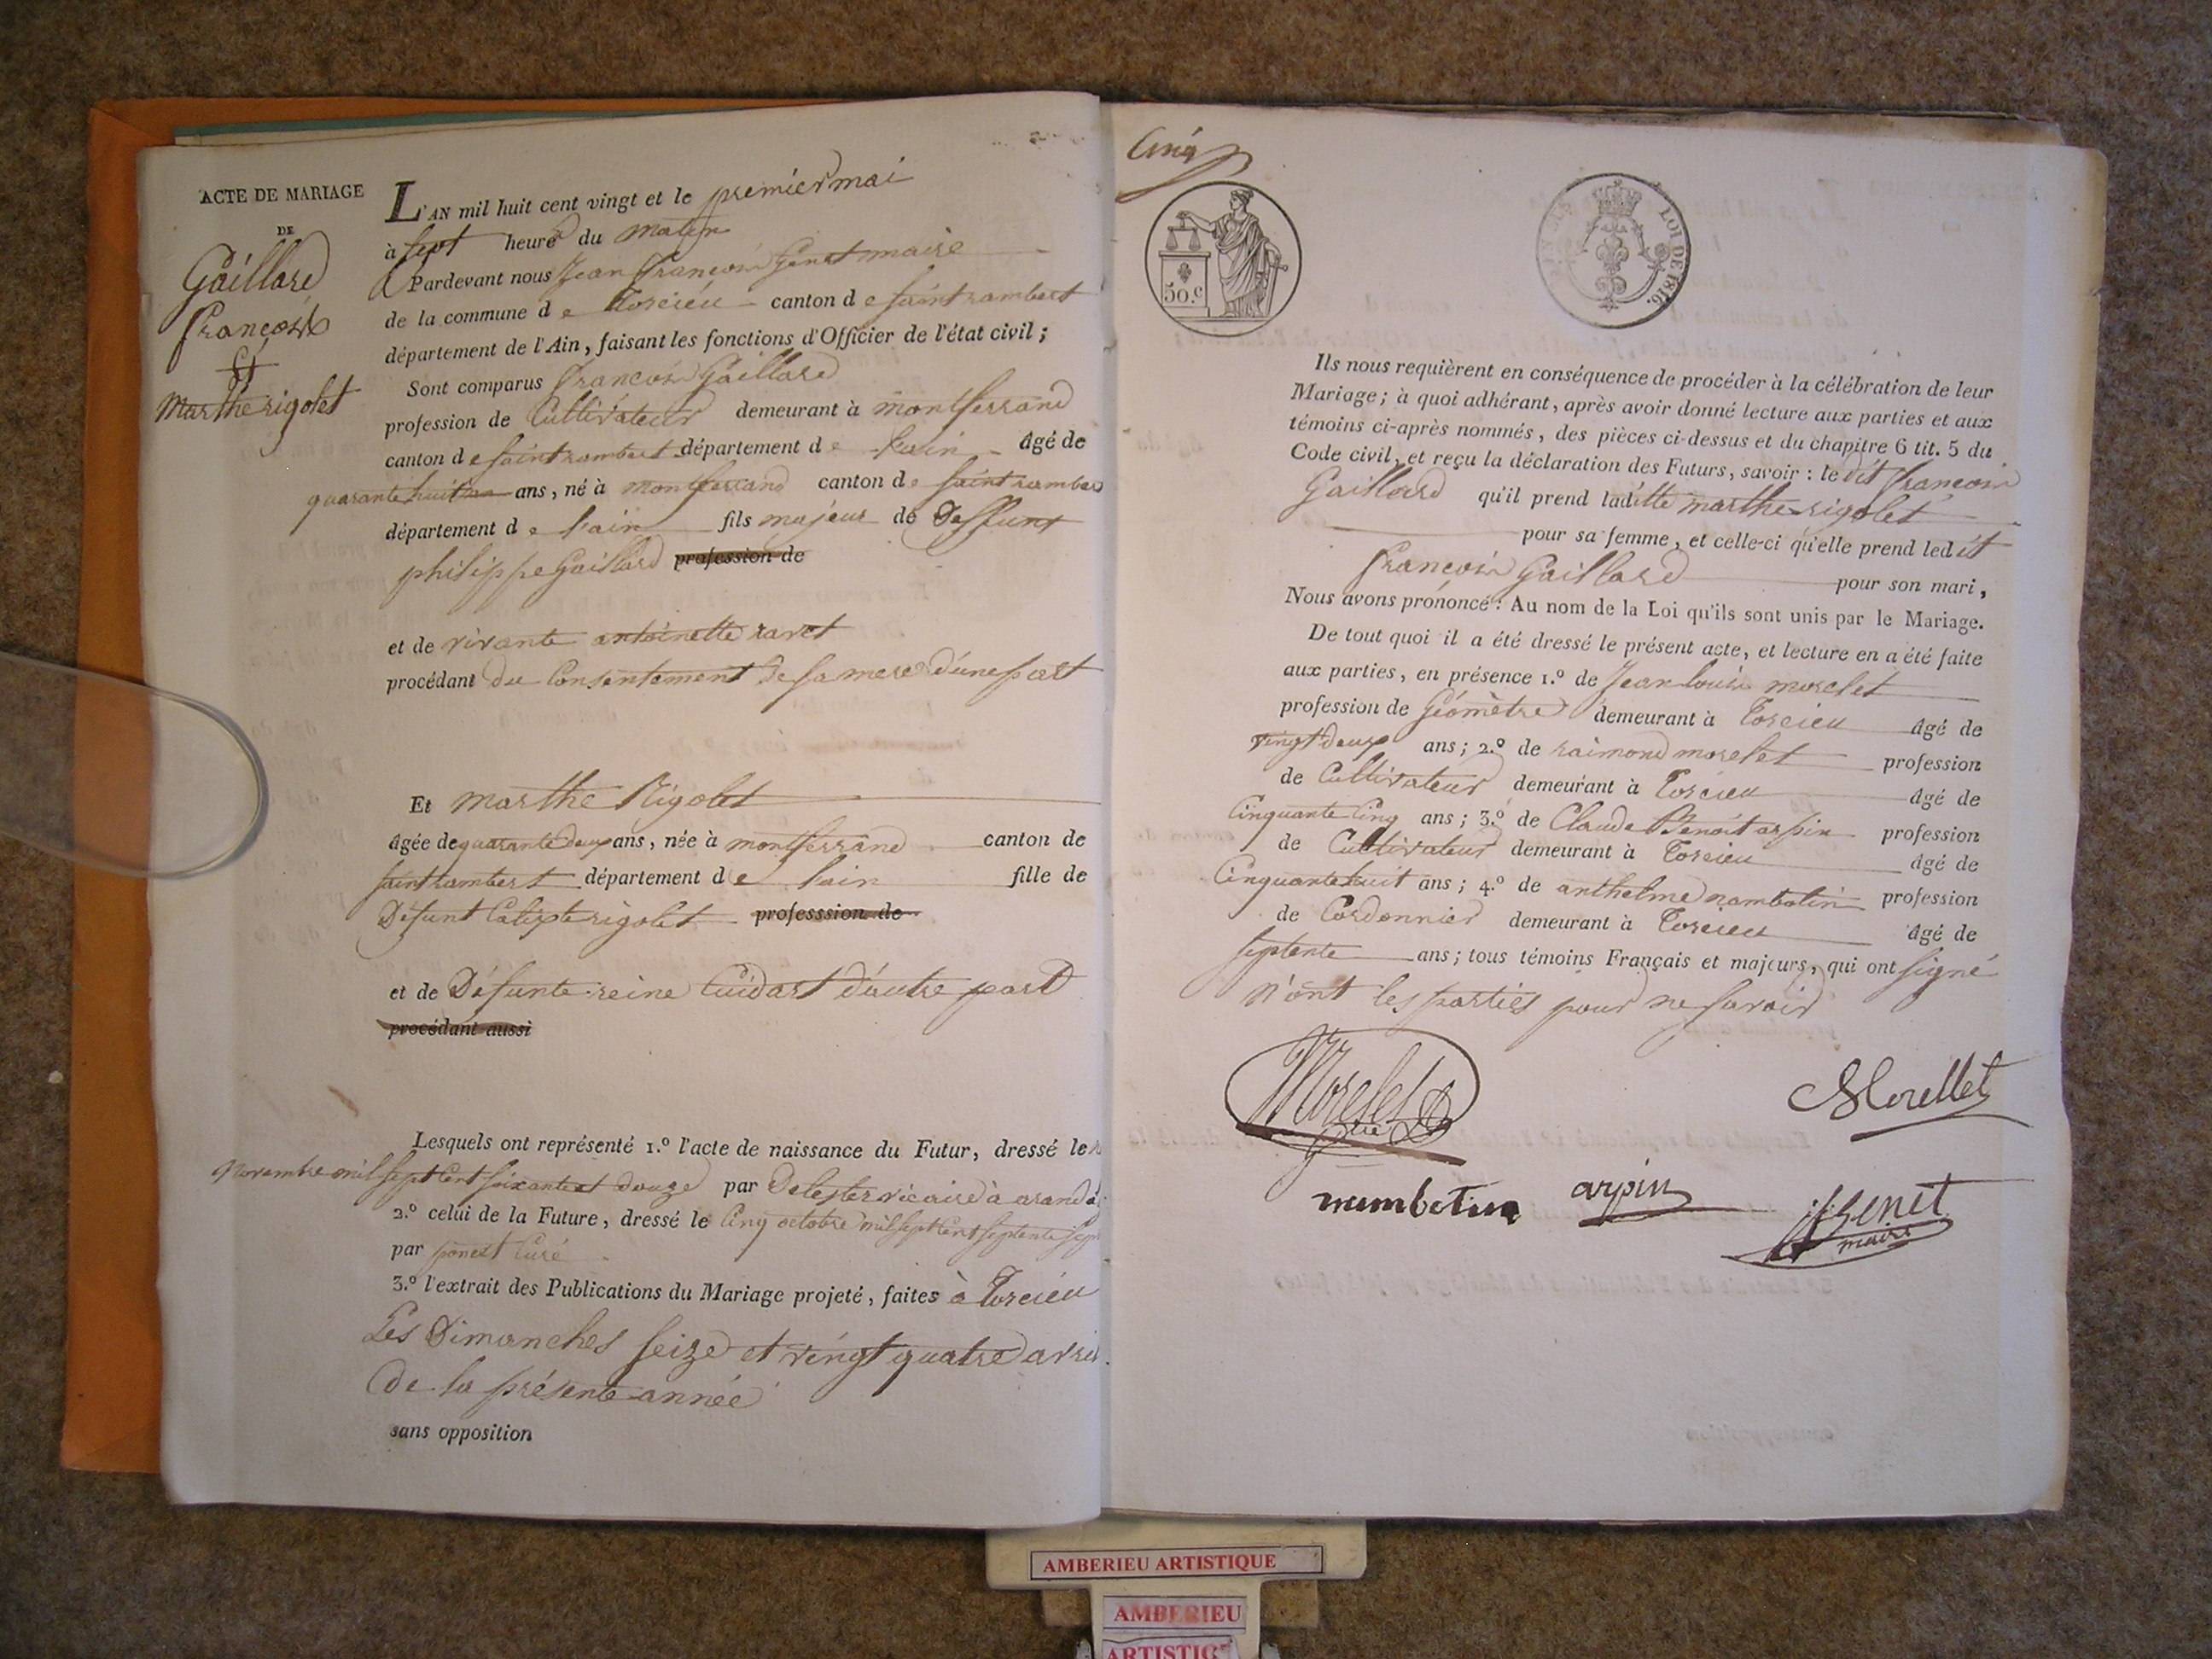 ACTE DE MARIAGE
DE
Gaillard
françois
Et
Marthe rigolet
L'AN mil huit cent vingt et le premier mai
à sept heures du matin
Pardevant nous Jean françois Genet maire
de la commune de Torcieu canton de saint rambert
département de l'Ain, faisant les fonctions d'Officier de l'état civil;
Sont comparus françois Gaillard
profession de Cultivateur demeurant à montferrand
canton de saint rambert département de l'ain âgé de
quarante huit ans, né à montferrand canton de saint rambert
département de l'ain fils majeur de Deffunt
philippe Gaillard profession de
et de vivante antoinette ravet
procédant du Consentement de sa mere d'une part
Et marthe Rigolet
âgée de quarante deux ans, née à montferrand canton de
saint rambert département de l'ain fille de
Défunt Calixte rigolet professsion de
et de Défunte reine Cuidart d'autre part
procédant aussi
Lesquels ont représenté 1.º l'acte de naissance du Futur, dressé le
novembre mil sept cent soixante et douze par vicaire à arand
2.º celui de la Future, dressé le Cinq octobre mil sept cent septente sept
par poncet Curé
3.º l'extrait des Publications du Mariage projeté, faites à Torcieu
Les Dimanches seize et vingt quatre avril
de la présente année
sans opposition
Cinq
50.c
LOI DE 1816.
Ils nous requièrent en conséquence de procéder à la célébration de leur
Mariage; à quoi adhérant, après avoir donné lecture aux parties et aux
témoins ci-après nommés, des pièces ci-dessus et du chapitre 6 tit. 5 du
Code civil, et reçu la déclaration des Futurs, savoir: le dit françois
Gaillard qu'il prend ladítte marthe rigolet
pour sa femme, et celle-ci qu'elle prend ledit
françois Gaillard pour son mari,
Nous avons prononcé: Au nom de la Loi qu'ils sont unis par le Mariage.
De tout quoi il a été dressé le présent acte, et lecture en a été faite
aux parties, en présence 1.º de Jean louis morelet
profession de Géomètre demeurant à Torcieu âgé de
vingt deux ans; 2.º de raimond morelet profession
de Cultivateur demeurant à Torcieu âgé de
Cinquante Cinq ans; 3.º de Claude Benoit arpin profession
de Cultivateur demeurant à Torcieu âgé de
Cinquante huit ans; 4.º de anthelme nambotin profession
de Cordonnier demeurant à Torcieu âgé de
septente ans; tous témoins Français et majeurs, qui ont signé
n'ont les parties pour ne savoir
Morelet
Morellet
nambotin
arpin
jf Genet
maire
AMBERIEU ARTISTIQUE
AMBERIEU